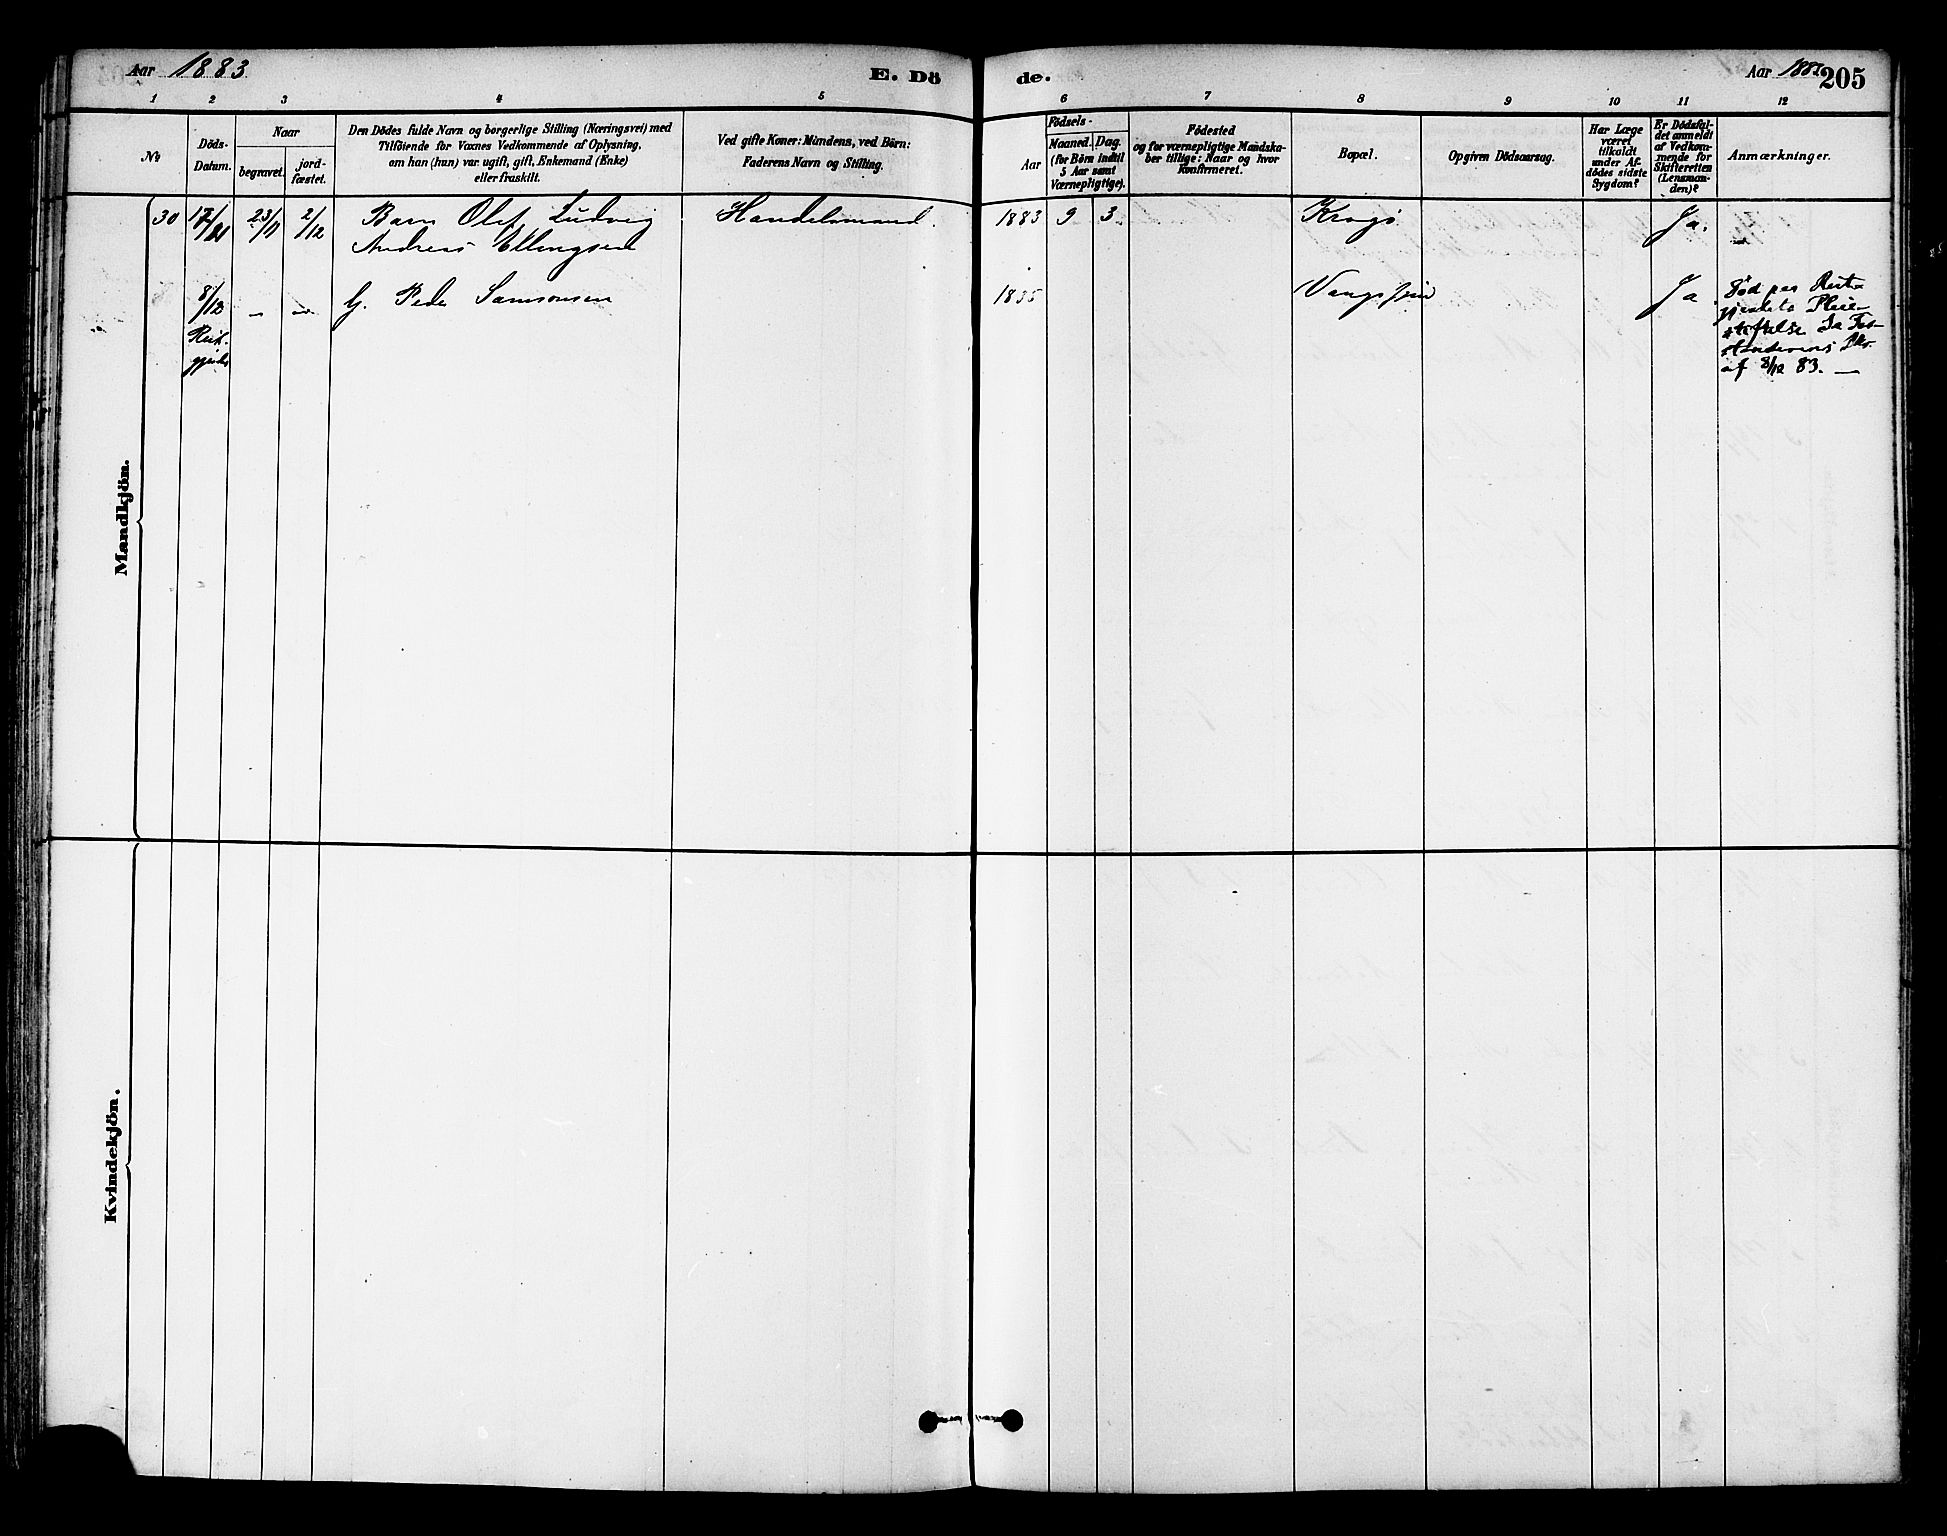 Aar 1883
E. Dö
de.
Aar 1883
205
1 2 3 4 5 6 7 8 9 10 11 12
No
Döds-
Datum.
Naar
begravet.
jord-
fæstet.
Den Dödes fulde Navn og borgerlige Stilling (Næringsvei) med
Tilföiende for Voxnes Vedkommende af Oplysning,
om han (hun) var ugift, gift, Enkemand (Enke)
eller fraskilt.
Ved gifte Koner: Mandens, ved Börn:
Faderens Navn og Stilling.
Födsels-
Aar
Maaned. Dag.
(for Börn indtil
5 Aar samt
Værnepligtige).
Födested
og for værnepligtige Mandska-
ber tillige: Naar og hvor
konfirmeret.
Bopæl.
Opgiven Dödsaarsag.
Har Læge
været
tilkaldt
under Af-
dödes sidste
Sygdom?
Er Dödsfal-
det anmeldt
af Vedkom-
mende for
Skifteretten
(Lensman-
den)?
Anmærkninger.
Mandkjön.
30 23/11 2/12 Barn Olef Ludvig Handelsmand. 1883 9 3. Kragö Ja. —
Andreas Ellingsen
8/12 — — G. Peder Samsonsen 1835 Ja. Död paa Reit-
gjerdets Pleie-
stiftelse
af 8/12 83. —
Reit-
gjerdet
Kvindekjön.